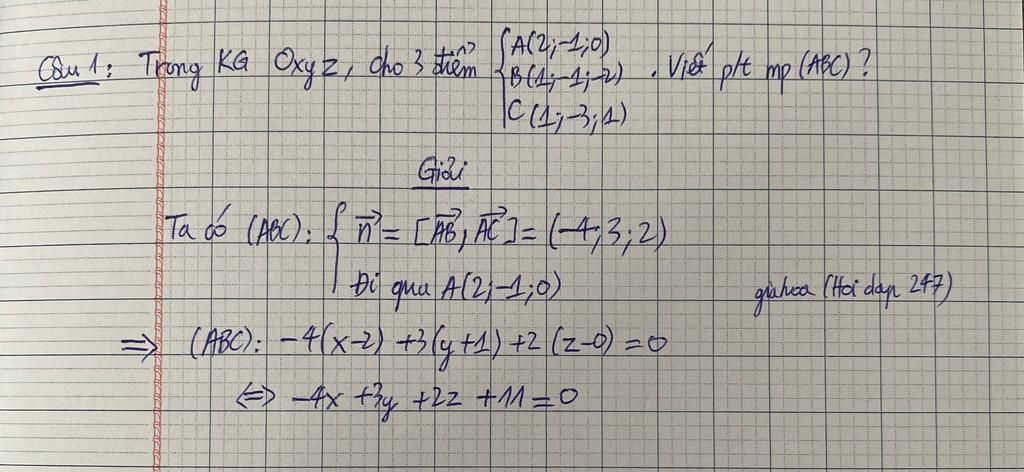 Câu 1: Trong KG Oxyz, cho 3 điểm { A(2;-1;0) . Viết pht mp (ABC) ?
B(1;-1;-2)
C(1;-3;1)
Giải
Ta có (ABC): { n⃗ = [AB⃗, AC⃗] = (-4;3;2)
Đi qua A(2;-1;0)
giahoa (Hoi dap 247)
=> (ABC): -4(x-2) +3(y+1) +2(z-0) = 0
<=> -4x +3y +2z +11 = 0